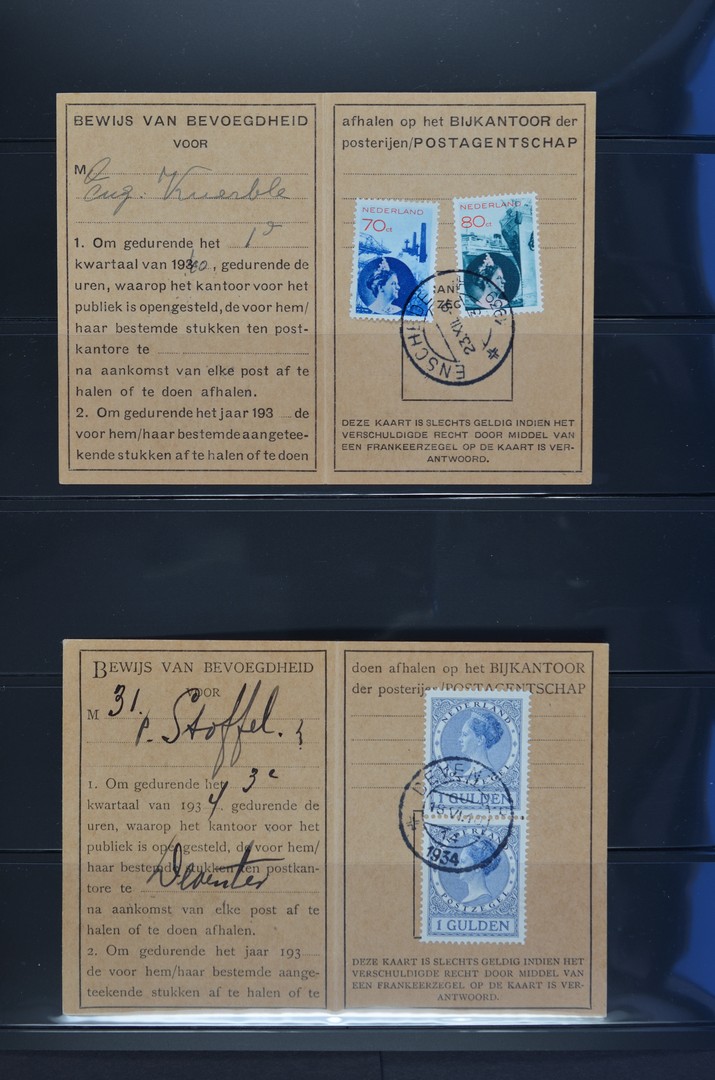 BEWIJS VAN BEVOEGDHEID
VOOR
M
Eug. Knerble
1. Om gedurende het 1e
kwartaal van 1940, gedurende de
uren, waarop het kantoor voor het
publiek is opengesteld, de voor hem/
haar bestemde stukken ten post-
kantore te
na aankomst van elke post af te
halen of te doen afhalen.
2. Om gedurende het jaar 193 de
voor hem/haar bestemde aangetee-
kende stukken af te halen of te doen
afhalen op het BIJKANTOOR der
posterijen/POSTAGENTSCHAP
NEDERLAND
70ct
NEDERLAND
80ct
ENSCHEDE
23.XII
1939
DEZE KAART IS SLECHTS GELDIG INDIEN HET
VERSCHULDIGDE RECHT DOOR MIDDEL VAN
EEN FRANKEERZEGEL OP DE KAART IS VER-
ANTWOORD.
BEWIJS VAN BEVOEGDHEID
VOOR
M 31. P. Stoffel.
1. Om gedurende het 3e
kwartaal van 1934 gedurende de
uren, waarop het kantoor voor het
publiek is opengesteld, de voor hem/
haar bestemde stukken ten postkan-
tore te Deventer
na aankomst van elke post af te
halen of te doen afhalen.
2. Om gedurende het jaar 193
de voor hem/haar bestemde aange-
teekende stukken af te halen of te
doen afhalen op het BIJKANTOOR
der posterijen/POSTAGENTSCHAP
NEDERLAND
1 GULDEN
DEVENTER
1934
POSTZEGEL
1 GULDEN
DEZE KAART IS SLECHTS GELDIG INDIEN HET
VERSCHULDIGDE RECHT DOOR MIDDEL VAN
EEN FRANKEERZEGEL OP DE KAART IS VER-
ANTWOORD.